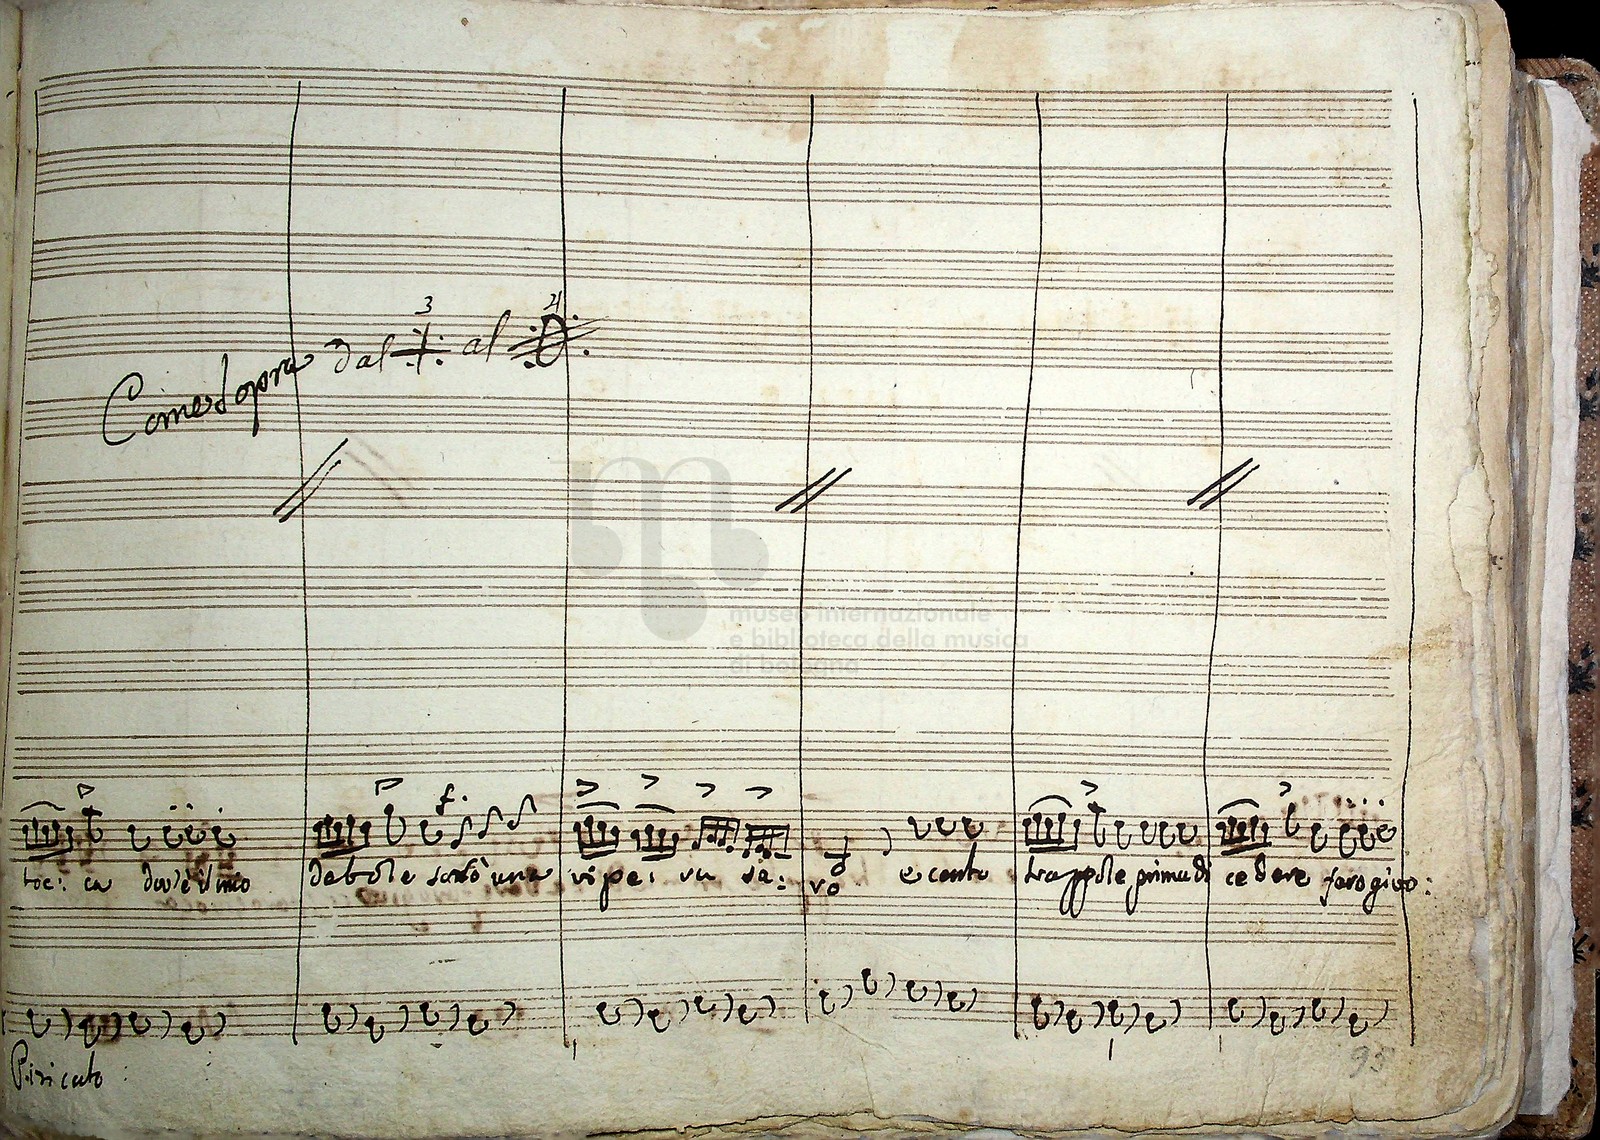 3 4
Come Sopra dal al
museo internazionale
e biblioteca della musica
di bologna
f.
toc: ca dov'è il mio debole sarò una vipe: ra sa: rò e cento trappole prima di cedere farò gioo:
Pizicato
95